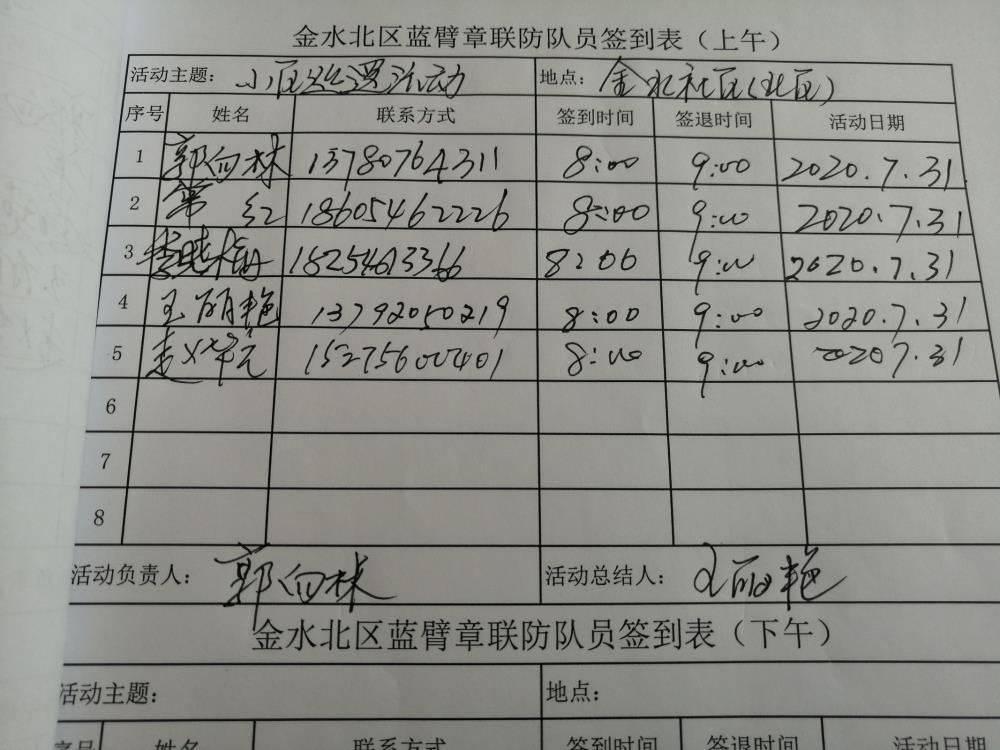 金水北区蓝臂章联防队员签到表（上午）
活动主题： 小区巡逻活动 地点： 金水社区(北区)
序号 姓名 联系方式 签到时间 签退时间 活动日期
1 郭向林 13780764311 8:00 9:00 2020.7.31
2 常红 18605462226 8:00 9:00 2020.7.31
3 李晓梅 18254613366 8:00 9:00 2020.7.31
4 王丽艳 13792050219 8:00 9:00 2020.7.31
5 15275600401 8:00 9:00 2020 7.31
6
7
8
活动负责人： 郭向林 活动总结人： 王丽艳
金水北区蓝臂章联防队员签到表（下午）
活动主题： 地点：
序号 姓名 联系方式 签到时间 签退时间 活动日期